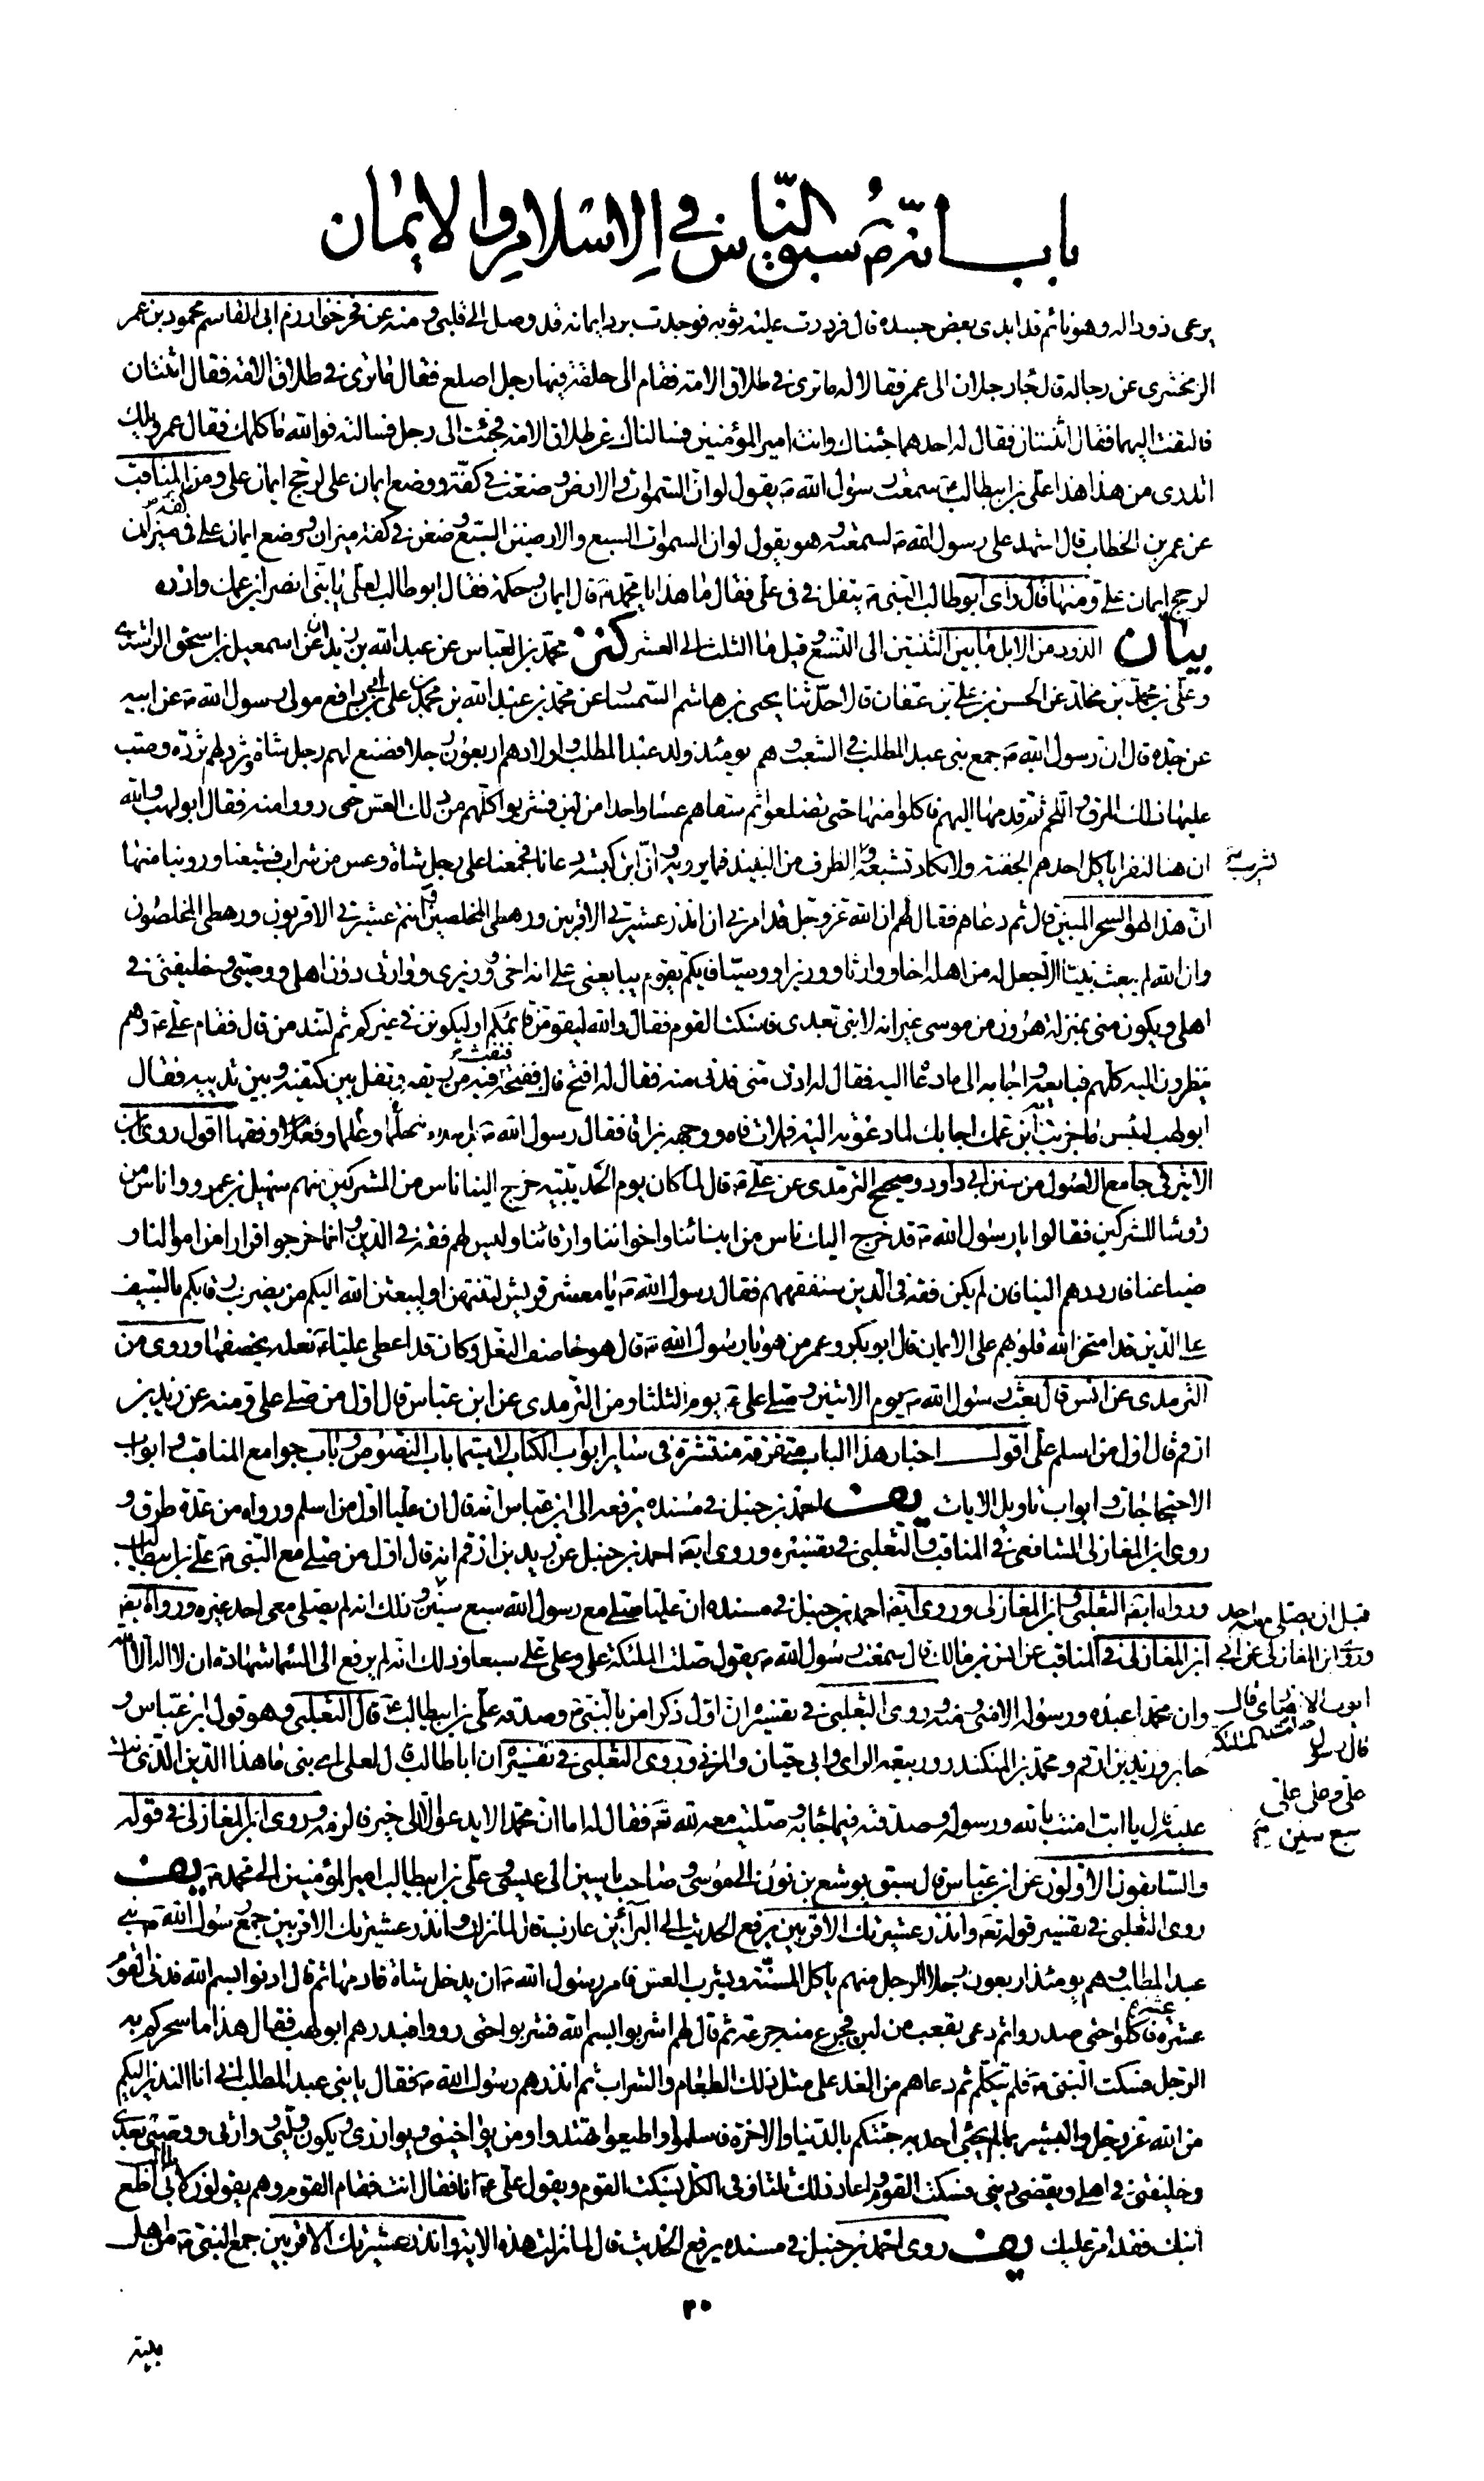 باب انّه ع سبق النّاس في الاسلام والايمان
يرعى ذودا له وهو نائم قد ابدى بعض جسده قال فرددت عليه ثوبه فوجدت برد ايمانه قد وصل الى قلبى ومنه عن فخر خوارزم ابى القاسم محمود بن عمر
الزمخشرى عن رجاله قال جاء رجلان الى عمر فقالا له ما ترى في طلاق الامة فقام الى حلقة فيها رجل اصلع فقال ما ترى في طلاق الامة فقال اثنتان
فالتفت اليهما فقال اثنتان فقال له احدهما جئناك وانت امير المؤمنين فسالناك عن طلاق الامة فجئت الى رجل فسالته فوالله ما كلمك فقال عمر ويلك
اتدرى من هذا هذا علي بن ابيطالب ع سمعت رسول الله ص يقول لو ان السموات والارض وضعت في كفة ووضع ايمان على لرجح ايمان على ومن المناقب
عن عمر بن الخطاب قال اشهد على رسول الله ص لسمعته وهو يقول لو ان السموات السبع والارضين السبع وضعن في كفة ميزان ووضع ايمان على في كفة ميزان
لرجح ايمان على ومنها قال راى ابو طالب النبي ص يتفل في فى على فقال ما هذا يا محمد ص قال ايمان وحكمة فقال ابو طالب لعلى يا بنى انصر ابن عمك وازره
بيان الذود من الابل ما بين الثنتين الى التسع وقيل ما الثلث الى العشر كنز محمد بن العباس عن عبد الله بن زيدان عن اسمعيل بن اسحق الراشدى
وعلى بن محمد بن مخلد عن الحسن بن على بن عفان قالا حدثنا يحيى بن هاشم السمسار عن محمد بن عبد الله بن محمد بن على بن ابى رافع مولى رسول الله ص عن ابيه
عن جده قال ان رسول الله ص جمع بنى عبد المطلب في الشعب وهم يومئذ ولد عبد المطلب واولادهم اربعون رجلا فصنع لهم رجل شاة وثرد لهم ثردة وصب
عليها ذلك المرق واللحم ثم قدمها اليهم فاكلوا منها حتى تضلعوا ثم سقاهم عسا واحدا من لبن فشربوا كلهم من ذلك العس حتى رووا منه فقال ابو لهب والله
ان هنا لنفرا ياكل احدهم الجفنة ولا تكاد تشبعه و الظرف من النبيذ فما يرويه وان ابن كبشة دعانا فجمعنا على رجل شاة وعس من شراب فشبعنا وروينا منها
ان هذا لهو السحر المبين قال ثم دعاهم فقال لهم ان الله عز وجل قد امرنى ان انذر عشيرتى الاقربين ورهطى المخلصين وانتم عشيرتى الاقربون ورهطى المخلصون
وان الله لم يبعث نبيا الا جعل له من اهله اخا ووارثا ووزيرا ووصيا فايكم يقوم يبايعنى على انه اخى ووزيرى ووارثى دون اهلى ووصيى وخليفتى في
اهلى ويكون منى بمنزلة هرون من موسى غير انه لا نبى بعدى فسكت القوم فقال والله ليقومن قائمكم او ليكونن في غيركم ثم لتندمن قال فقام على ع وهم
ينظرون اليه كلهم فبايعه واجابه الى ما دعا اليه فقال له ادن منى فدنى منه فقال له افتح فاك ففتحه فنفث فيه من ريقه وتفل بين كتفيه وبين ثدييه فقال
ابو لهب لبئس ما جزيت به ابن عمك اجابك لما دعوته اليه فملات فاه ووجهه بزاقا فقال رسول الله ص بل ملاته حلما وعلما وفهما وفقها اقول روى ابن
الاثير في جامع الاصول من سنن ابى داود وصحيح الترمذى عن على ع قال لما كان يوم الحديبية خرج الينا ناس من المشركين منهم سهيل بن عمرو واناس من
رؤسا المشركين فقالوا يا رسول الله ص قد خرج اليك ناس من ابنائنا واخواننا وارقائنا وليس لهم فقه في الدين وانما خرجوا فرارا من اموالنا و
ضياعنا فارددهم الينا فان لم يكن فقه في الدين سنفقههم فقال رسول الله ص يا معشر قريش لتنتهن او ليبعثن الله اليكم من يضرب رقابكم بالسيف
على الدين قد امتحن الله قلوبهم على الايمان قال ابو بكر وعمر من هو يا رسول الله ص قال هو خاصف النعل وكان قد اعطى عليا ع نعله يخصفها وروى من
الترمذى عن انس قال بعث رسول الله ص يوم الاثنين وصلى على ع يوم الثلثا ومن الترمدى عن ابن عباس قال اول من صلى على ومنه عن زيد بن
ارقم قال اول من اسلم على اقول اخبار هذا الباب متفرقة منتشرة في ساير ابواب الكتاب لا سيما باب النصوص وباب جوامع المناقب وابواب
الاحتجاجات وابواب تاويل الايات يف احمد بن حنبل في مسنده يرفعه الى ابن عباس انه قال ان عليا اول من اسلم ورواه من عدة طرق و
روى ابن المغازلى الشافعى في المناقب والثعلبى في تفسيره وروى ايضا احمد بن حنبل عن زيد بن ارقم انه قال اول من صلى مع النبى ص على بن ابيطالب
ورواه ايضا الثعلبى وابن المغازلى وروى ايضا احمد بن حنبل في مسنده ان عليا صلى مع رسول الله سبع سنين وذلك انه لم يصلى معى احد غيره ورواه ايضا
ابن المغازلى في المناقب عن انس بن مالك قال سمعت رسول الله ص يقول صلت الملئكة على وعلى على سبعا وذلك انه لم يرفع الى السماء شهادة ان لا اله الا الله
وان محمدا عبده ورسوله الا منى ومنه وروى الثعلبى في تفسيره ان اول ذكر امن بالنبى ص وصدقه على بن ابيطالب ع قال الثعلبى وهو قول ابن عباس و
جابر وزيد بن ارقم ومحمد بن المنكندر وربيعة الراى وابى حيان والمزنى وروى الثعلبى في تفسيره ان ابا طالب قال لعلى اى بنى ما هذا الدين الذى انت
عليه قال يا ابت امنت بالله ورسوله وصدقته فيما جاء به وصليت معه لله تع فقال له اما ان محمدا لا يدعو الا الى خير فالزمه وروى ابن المغازلى في قوله
والسابقون الاولون عن ابن عباس قال سبق يوشع بن نون الى موسى وصاحب ياسين الى عيسى وعلى بن ابيطالب امير المؤمنين الى محمد ص يف
روى الثعلبى في تفسير قوله تع وانذر عشيرتك الاقربين يرفع الحديث الى البراء بن عازب قال لما نزلت وانذر عشيرتك الاقربين جمع رسول الله ص بنى
عبد المطلب وهم يومئذ اربعون رجلا الرجل منهم ياكل المسنة ويشرب العس فامر رسول الله ص ان يدخل شاة فادمها ثم قال ادنوا بسم الله فدنى القوم
عشرة عشرة فاكلوا حتى صدروا ثم دعى بقعب من لبن فجرع منه جرعة ثم قال لهم اشربوا بسم الله فشربوا حتى رووا فبدرهم ابو لهب فقال هذا ما سحركم به
الرجل فسكت النبى ص فلم يتكلم ثم دعاهم من الغد على مثل ذلك الطعام والشراب ثم انذرهم رسول الله ص فقال يا بنى عبد المطلب انى انا النذير اليكم
من الله عز وجل والبشير بما لم يجئ احد به جئتكم بالدنيا والاخرة فاسلموا واطيعوا تهتدوا ومن يواخينى ويوازرنى ويكون وليى ووارثى ووصيى بعدى
وخليفتى في اهلى ويقضى دينى فسكت القوم واعاد ذلك ثلثا وفى الكل يسكت القوم ويقول على ع انا فقال انت فقام القوم وهم يقولون لابى طالب اطع
ابنك فقد امر عليك يف روى احمد بن حنبل في مسنده يرفع الحديث قال لما نزلت هذه الاية وانذر عشيرتك الاقربين جمع النبى ص من اهل
قبل ان يصلى معه احد
وروى ابن المغازلى عن ابى
ايوب الانصارى قال
قال رسول الله ص صلت الملئكة
على وعلى على
سبع سنين
٣٠
بيته